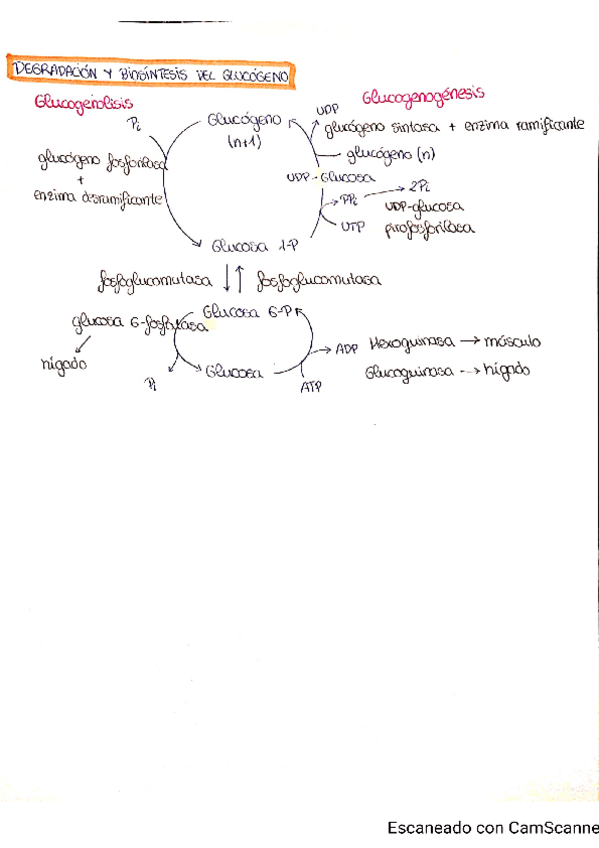 DEGRADACIÓN Y BIOSÍNTESIS DEL GLUCÓGENO
Glucogenolisis
Glucogenogénesis
Pi
Glucógeno
(n+1)
UDP
glucógeno sintasa + enzima ramificante
glucógeno (n)
glucógeno fosforilasa
+
enzima desramificante
UDP-Glucosa
PPi → 2Pi
UDP-glucosa
pirofosforilasa
UTP
Glucosa 1-P
fosfoglucomutasa
fosfoglucomutasa
Glucosa 6-P
glucosa 6-fosfatasa
hígado
Pi
Glucosa
ADP
ATP
Hexoquinasa → músculo
Glucoquinasa → hígado
Escaneado con CamScanne